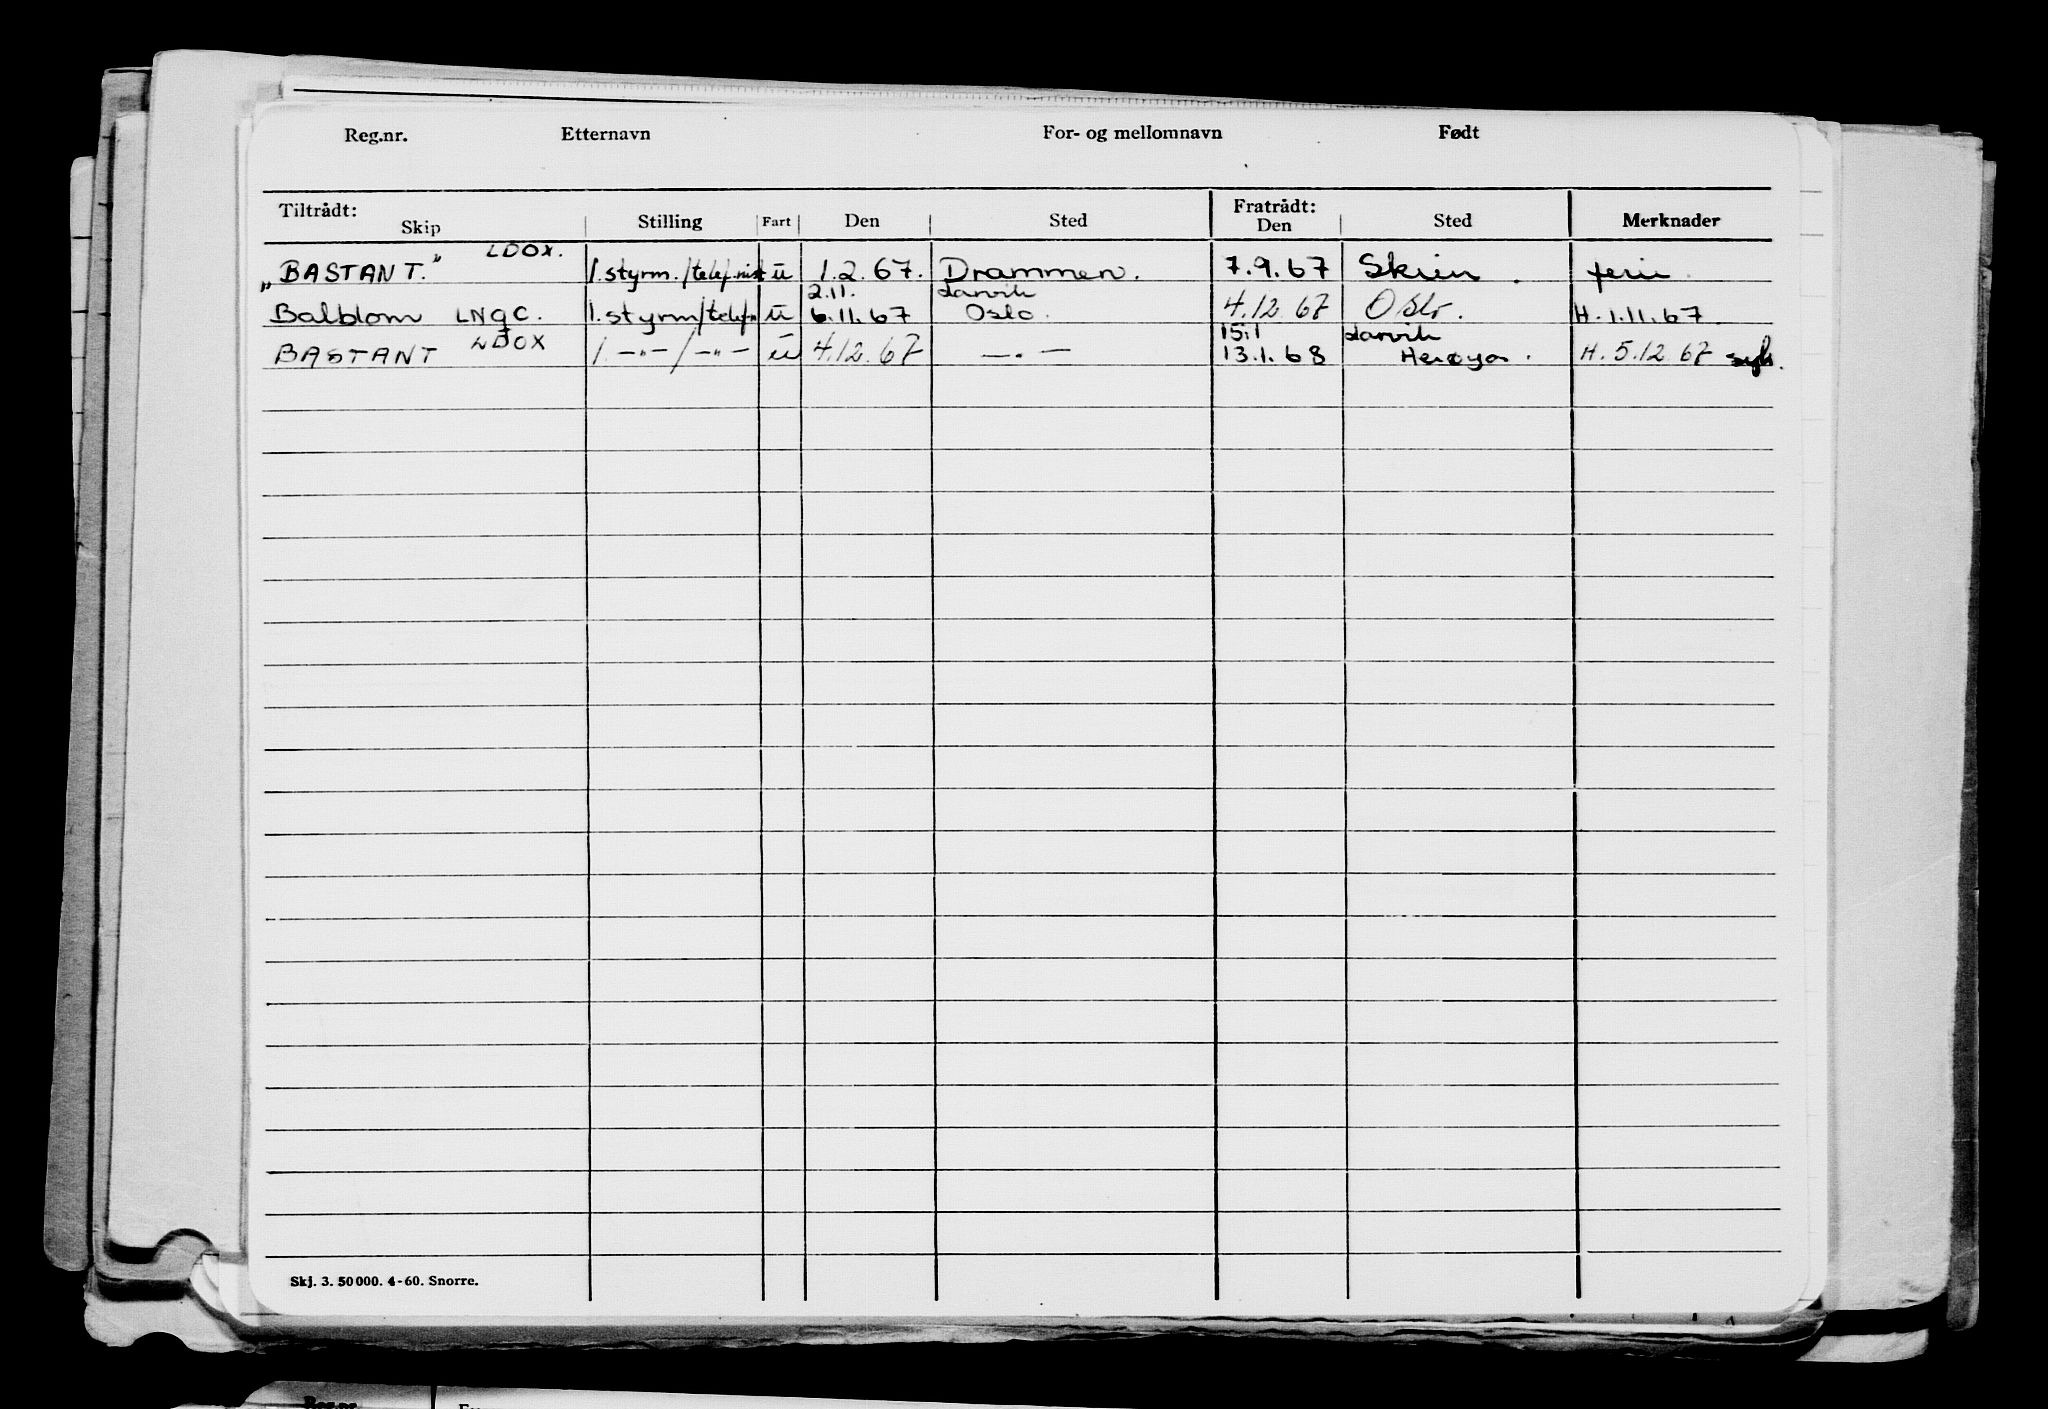 Reg.nr. Etternavn For- og mellomnavn Født
Tiltrådt: Fratrådt:
Skip Stilling Fart Den Sted Den Sted Merknader
LDOX.
„BASTANT.” 1.styrm./telef.nist u 1.2.67. Drammen. 7.9.67 Skien. ferie.
2.11. Larvik
Balblom LNGC. 1.styrm/telef.n u 6.11.67 Oslo. 4.12.67 Oslo. H.1.11.67
LDOX 15.1 Larvik
BASTANT 1. —„— / —„— u 4.12.67 —„— 13.1.68 Herøya. H.5.12.67 syk.
Skj. 3. 50000. 4-60. Snorre.
Reg.nr.